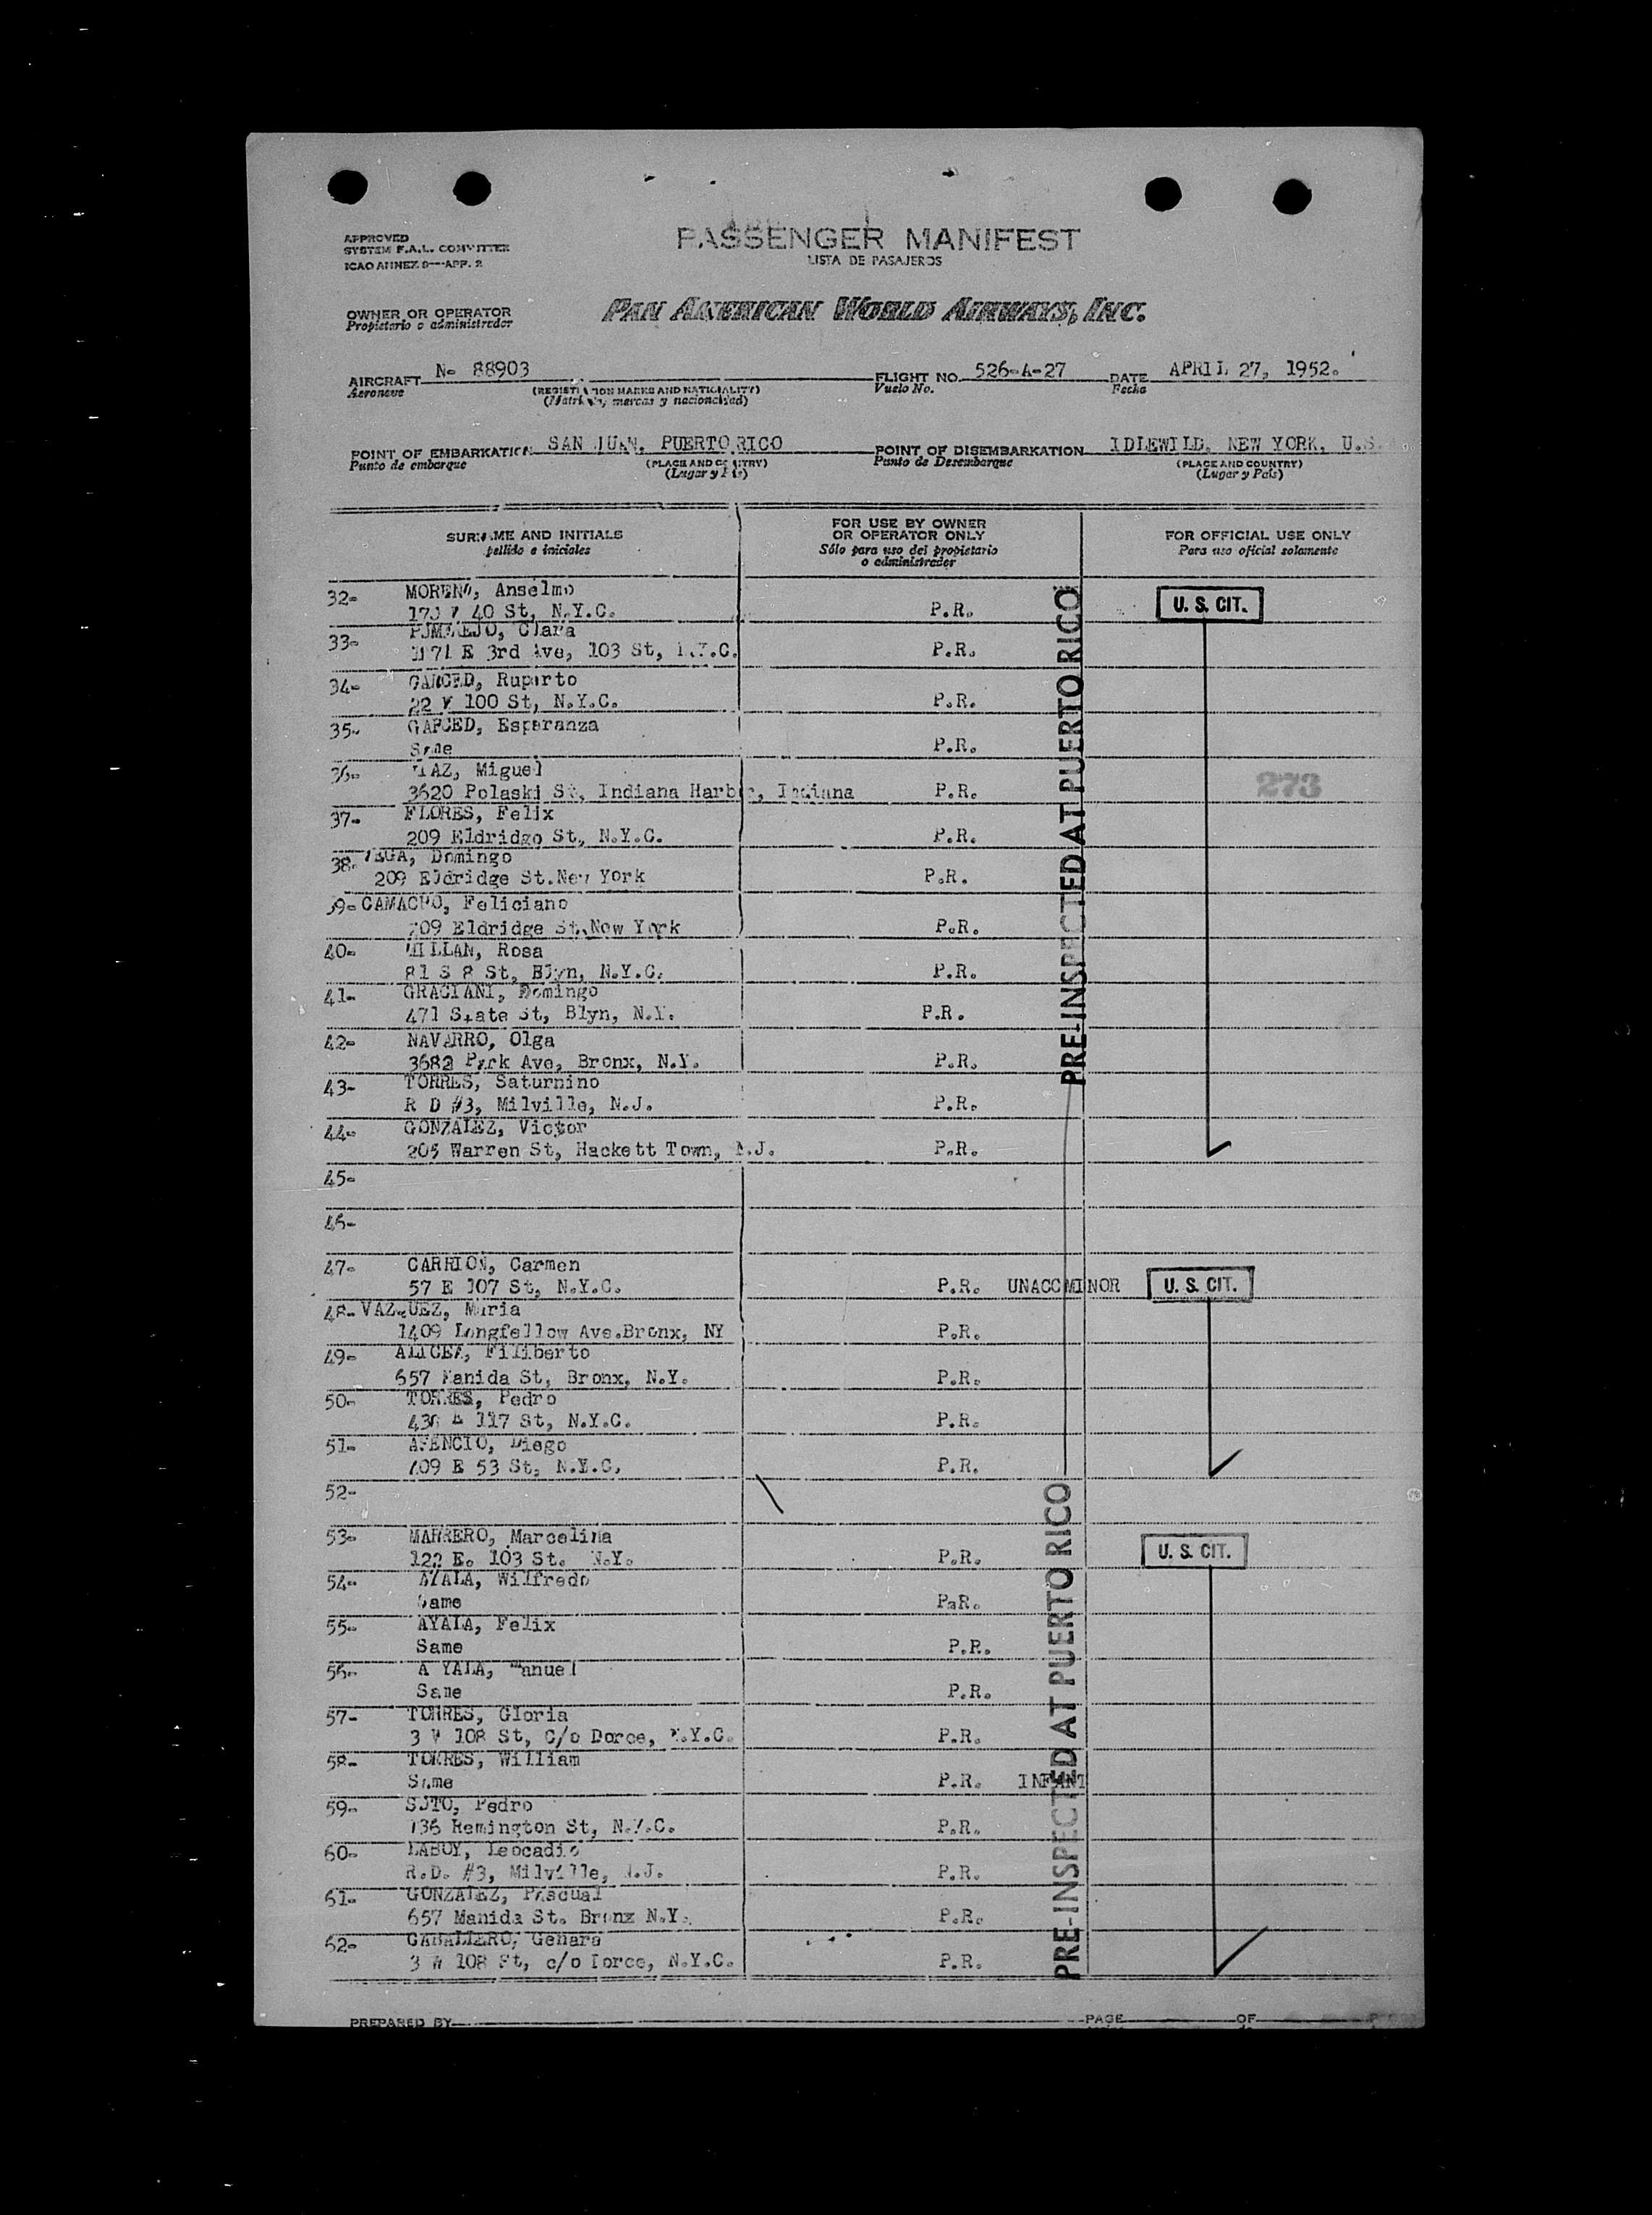 APPROVED
SYSTEM F.A.L. COMMITTEE
ICAO ANNEX 9—APP. 2
PASSENGER MANIFEST
LISTA DE PASAJEROS
OWNER OR OPERATOR
Propietario o administrador
PAN AMERICAN WORLD AIRWAYS, INC.
AIRCRAFT N- 88903
Aeronave
(REGISTRATION MARKS AND NATIONALITY)
(Matrícula, marcas y nacionalidad)
FLIGHT NO. 526-A-27
Vuelo No.
DATE APRIL 27, 1952.
Fecha
POINT OF EMBARKATION SAN JUAN, PUERTO RICO
Punto de embarque
(PLACE AND COUNTRY)
(Lugar y País)
POINT OF DISEMBARKATION IDLEWILD, NEW YORK, U.S.
Punto de Desembarque
(PLACE AND COUNTRY)
(Lugar y País)
SURNAME AND INITIALS
pellido e iniciales
FOR USE BY OWNER
OR OPERATOR ONLY
Sólo para uso del propietario
o administrador
FOR OFFICIAL USE ONLY
Para uso oficial solamente
32- MORENO, Anselmo
40 St, N.Y.C. P.R. U. S. CIT.
33- Clara
E 3rd Ave, 103 St, N.Y.C. P.R.
34- GARCED, Ruperto
22 W 100 St, N.Y.C. P.R.
35- GARCED, Esperanza
Same P.R.
36- Miguel
3620 Polaski St, Indiana Harbor, Indiana P.R.
273
37- FLORES, Felix
209 Eldridge St, N.Y.C. P.R.
38- VEGA, Domingo
209 Eldridge St.New York P.R.
39- CAMACHO, Feliciano
209 Eldridge St.New York P.R.
40- MILLAN, Rosa
81 S 8 St, Blyn, N.Y.C. P.R.
41- GRACIANI, Domingo
471 State St, Blyn, N.Y. P.R.
42- NAVARRO, Olga
3682 Park Ave, Bronx, N.Y. P.R.
43- TORRES, Saturnino
R D #3, Milville, N.J. P.R.
44- GONZALEZ, Victor
205 Warren St, Hackett Town, N.J. P.R.
PRE-INSPECTED AT PUERTO RICO
45-
46-
47- CARRION, Carmen
57 E 107 St, N.Y.C. P.R. UNACC MINOR U. S. CIT.
48- VAZQUEZ, Maria
1409 Longfellow Ave.Bronx, NY P.R.
49- ALICEA, Filiberto
657 Manida St, Bronx, N.Y. P.R.
50- TORRES, Pedro
117 St, N.Y.C. P.R.
51- Diego
E 53 St, N.Y.C. P.R.
52-
53- MARRERO, Marcelina
122 E. 103 St. N.Y. P.R. U. S. CIT.
54- AYALA, Wilfredo
Same P.R.
55- AYALA, Felix
Same P.R.
56- A YALA, Manuel
Same P.R.
57- TORRES, Gloria
3 W 108 St, C/o Dorce, N.Y.C. P.R.
58- TORRES, William
Same P.R. INFANT
59- SOTO, Pedro
Remington St, N.Y.C. P.R.
60- LABOY, Leocadio
R.D. #3, Milville, N.J. P.R.
61- GONZALEZ, Pascual
657 Manida St. Bronx N.Y. P.R.
62- CABALLERO, Genara
3 W 108 St, c/o Dorce, N.Y.C. P.R.
PRE-INSPECTED AT PUERTO RICO
PREPARED BY
PAGE OF